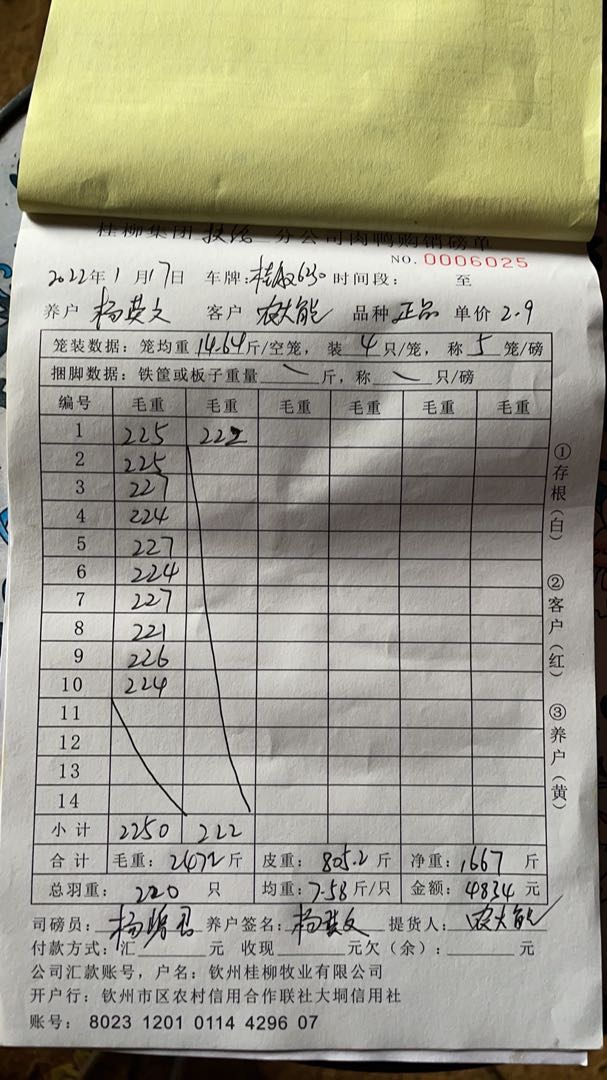 桂柳集团扶绥分公司肉鸭购销磅单
NO. 0006025
2022年1月17日 车牌:桂 630 时间段: 至
养户 杨英文 客户 农大能 品种 正品 单价 2.9
笼装数据:笼均重 14.64 斤/空笼,装 4 只/笼,称 5 笼/磅
捆脚数据:铁筐或板子重量 \ 斤,称 \ 只/磅
编号 毛重 毛重 毛重 毛重 毛重 毛重
1 225 222
2 225
3 227
4 224
5 227
6 224
7 227
8 221
9 226
10 224
11
12
13
14
小计 2250 222
合计 毛重:2472斤 皮重:805.2斤 净重:1667斤
总羽重:220 只 均重:7.58斤/只 金额:4834元
司磅员:杨 君 养户签名:杨英文 提货人:农大能
付款方式:汇 元 收现 元欠(余): 元
公司汇款账号,户名:钦州桂柳牧业有限公司
开户行:钦州市区农村信用合作联社大垌信用社
账号: 8023 1201 0114 4296 07
①存根(白)
②客户(红)
③养户(黄)